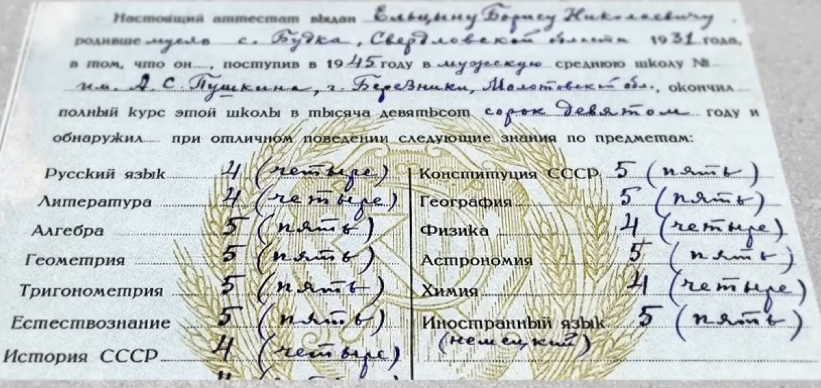 Настоящий аттестат выдан Ельцину Борису Николаевичу
родившемуся в с. Будка, Свердловской области 1931 года,
в том, что он, поступив в 1945 году в мужскую среднюю школу №
им. А. С. Пушкина, г. Березники, Молотовской обл., окончил
полный курс этой школы в тысяча девятьсот сорок девятом году и
обнаружил при отличном поведении следующие знания по предметам:
Русский язык 4 (четыре)
Литература 4 (четыре)
Алгебра 5 (пять)
Геометрия 5 (пять)
Тригонометрия 5 (пять)
Естествознание 5 (пять)
История СССР 4 (четыре)
Конституция СССР 5 (пять)
География 5 (пять)
Физика 4 (четыре)
Астрономия 5 (пять)
Химия 4 (четыре)
Иностранный язык 5 (пять)
(немецкий)